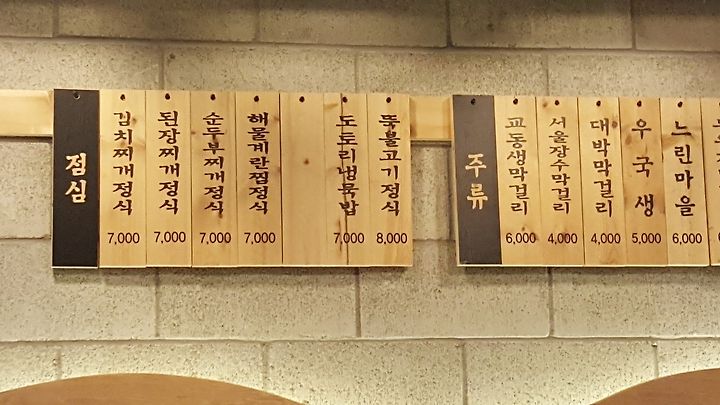 점심
김치찌개정식
7,000
된장찌개정식
7,000
순두부찌개정식
7,000
해물계란찜정식
7,000
도토리냉묵밥
7,000
뚝불고기정식
8,000
주류
교동생막걸리
6,000
서울장수막걸리
4,000
대박막걸리
4,000
우국생
5,000
느린마을
6,000